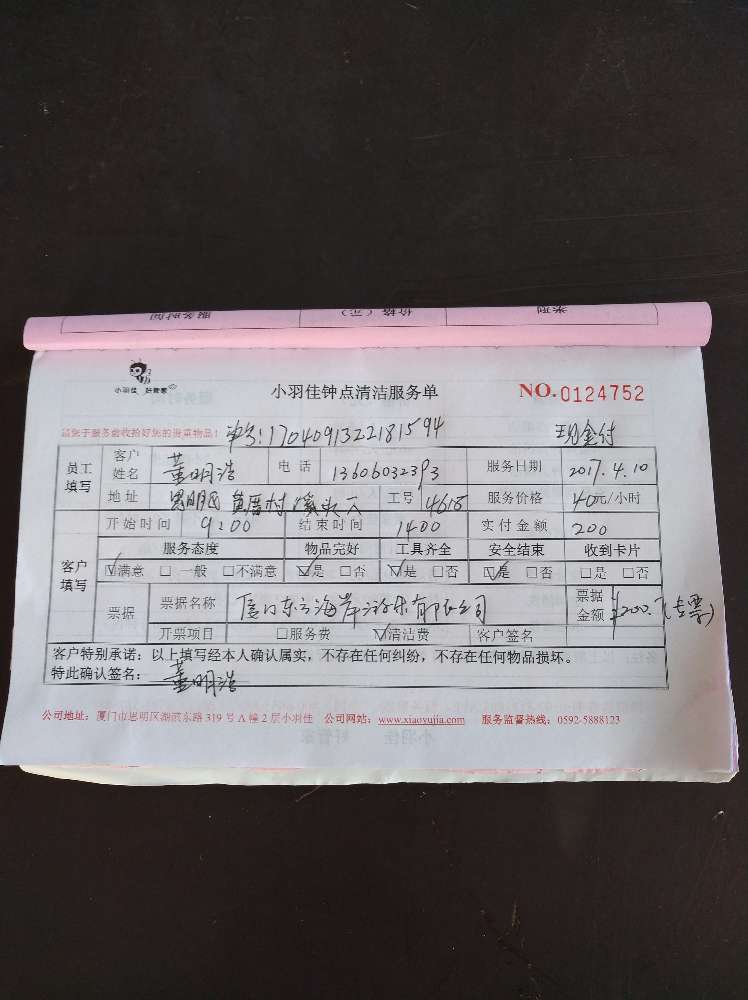 服务时间 价格(元) 类型
小羽佳 好管家
小羽佳钟点清洁服务单 NO.0124752
请您于服务前收拾好您的贵重物品! 单号:1704091322181594 现金付
员工填写 客户姓名 董明浩 电话 13606032393 服务日期 2017.4.10
地址 思明区黄厝村溪头下 工号 4618 服务价格 40元/小时
开始时间 9:00 结束时间 1400 实付金额 200
客户填写 服务态度 物品完好 工具齐全 安全结束 收到卡片
☑满意 □一般 □不满意 ☑是 □否 ☑是 □否 ☑是 □否 □是 □否
票据 票据名称 厦门东方海岸游乐有限公司 票据金额 ¥200.
开票项目 □服务费 ☑清洁费 客户签名
客户特别承诺:以上填写经本人确认属实,不存在任何纠纷,不存在任何物品损坏。
特此确认签名: 董明浩
公司地址:厦门市思明区湖滨东路 319 号 A 幢 2 层小羽佳 公司网站:www.xiaoyujia.com 服务监督热线:0592-5888123